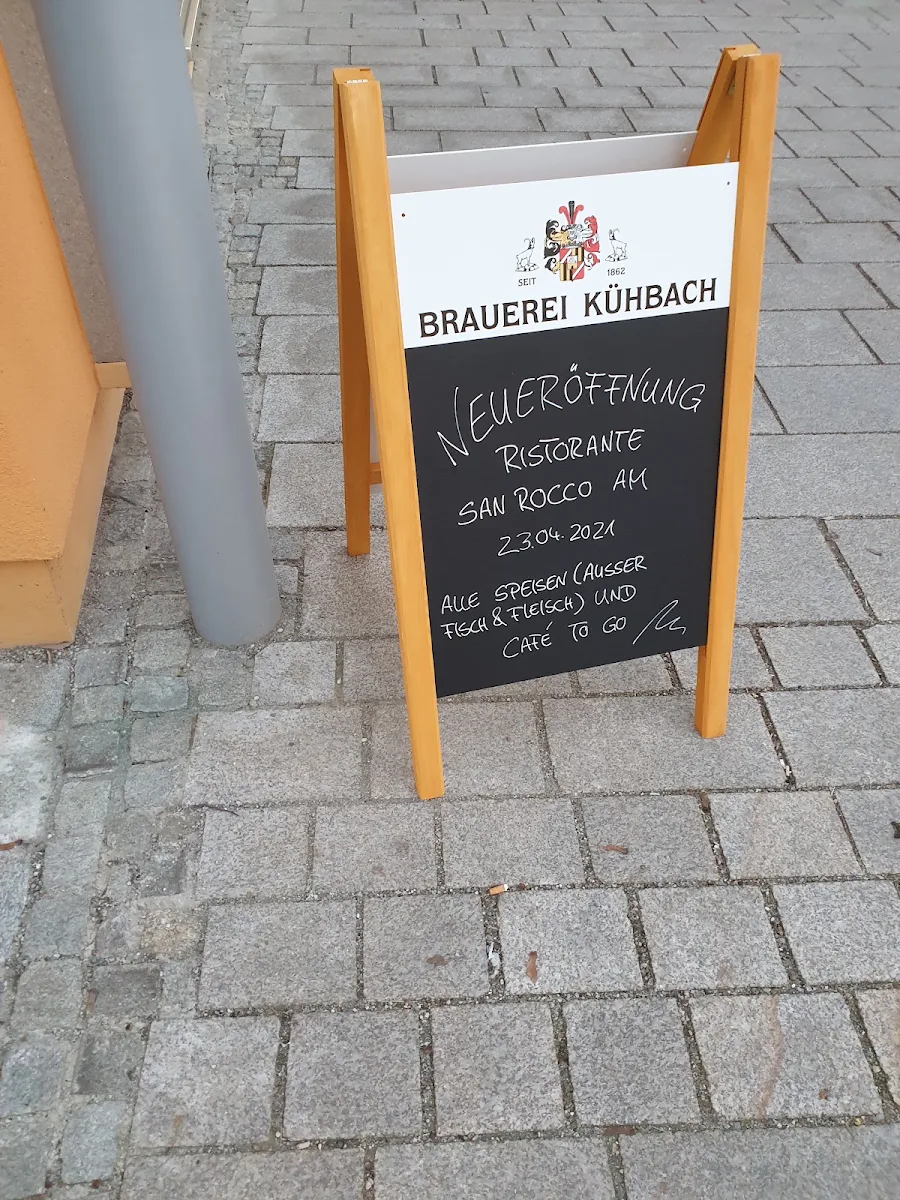 SEIT 1862
BRAUEREI KÜHBACH
NEUERÖFFNUNG
RISTORANTE
SAN ROCCO AM
23.04.2021
ALLE SPEISEN (AUSSER
FISCH & FLEISCH) UND
CAFÉ TO GO